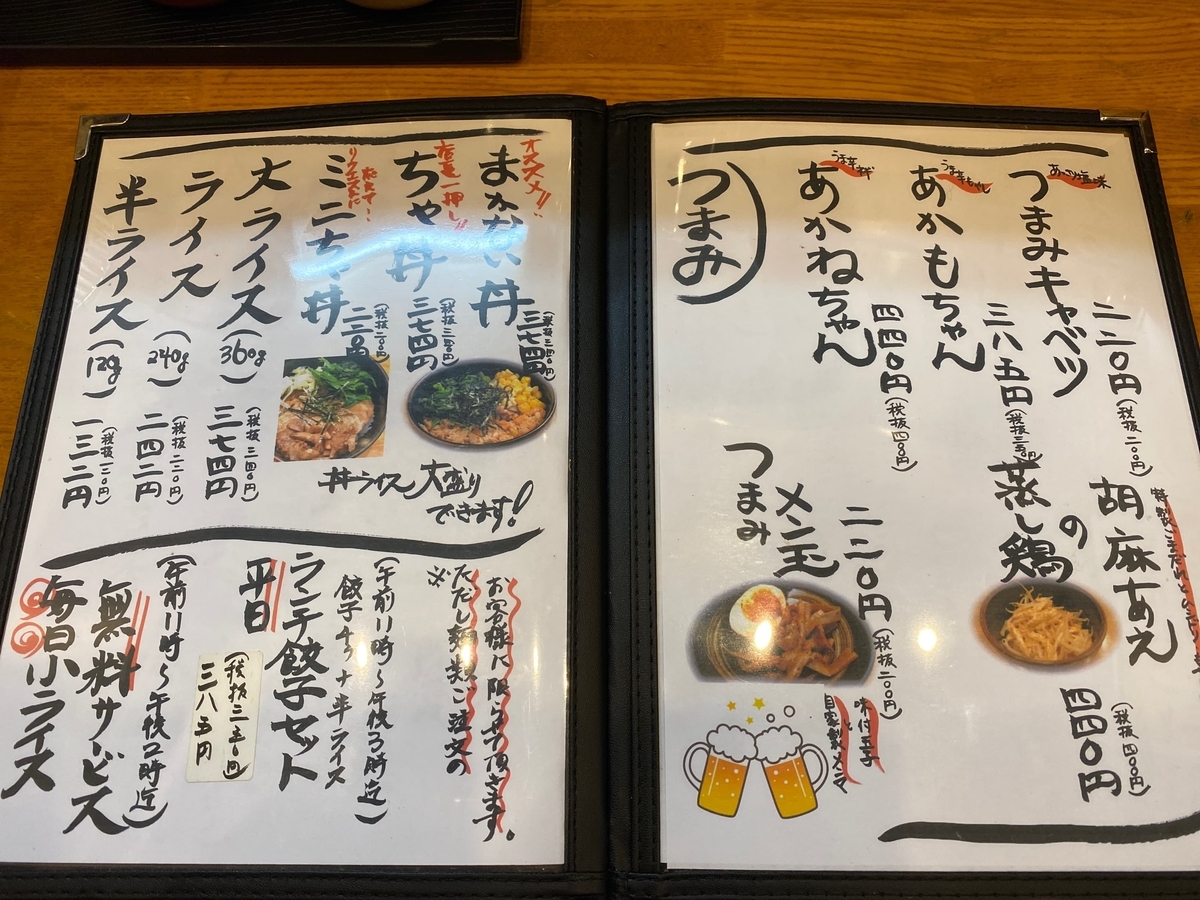 オススメ!!
まかない丼
三七四円
(税抜三四〇円)
店長一押し!!
ちゃ丼
三七四円
(税抜三四〇円)
リクエストに
応えて!
ミニちゃ丼
二二〇円
(税抜二〇〇円)
大ライス(360g)
三七四円
(税抜三四〇円)
ライス(240g)
二四二円
(税抜二二〇円)
半ライス(120g)
一三二円
(税抜一二〇円)
丼ライス大盛り
できます!
お客様に限らせて頂きます。
※ただし麺類ご注文の
(午前11時〜午後3時迄)
餃子4コ+半ライス
ランチ餃子セット
平日
(税抜三五〇円)
三八五円
(午前11時〜午後2時迄)
無料サービス
毎日小ライス
あっさり塩味
つまみキャベツ
二二〇円
(税抜二〇〇円)
あかもちゃん
三八五円
(税抜三五〇円)
あかねちゃん
四四〇円
(税抜四〇〇円)
つまみ
胡麻あえ
の
蒸し鶏
四四〇円
(税抜四〇〇円)
つまみ
メン玉
二二〇円
(税抜二〇〇円)
味付玉子
と
自家製メンマ